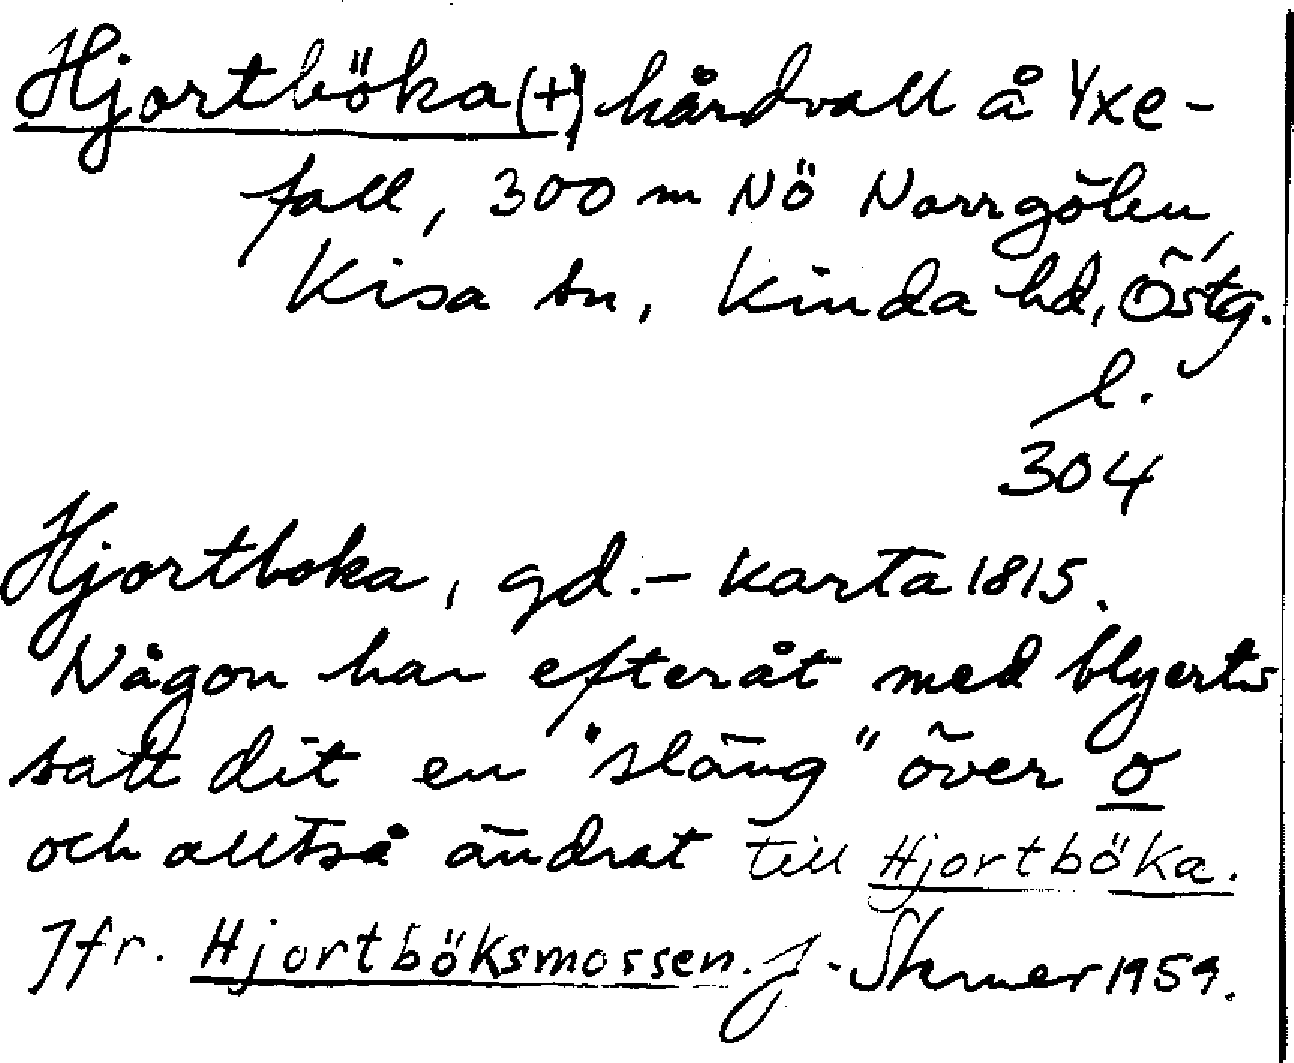 Hjortböka (+) hårdvall å Yxe-
fall, 300 m NÖ Norrgölen,
Kisa sn, Kinda hd, Östg.
l.
304
Hjortboka, gd. - karta 1815.
Någon har efteråt med blyerts
satt dit en "släng" över o
och alltså ändrat till Hjortböka.
Jfr. Hjortböksmossen. J.
1959.